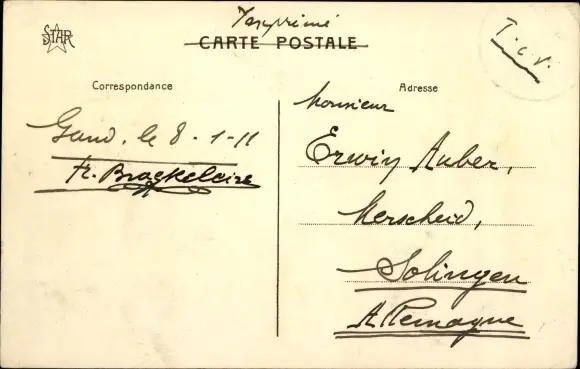 Imprimé
STAR
CARTE POSTALE
T.c.v.
Correspondance
Adresse
Gand, le 8-1-11
Fr. Braekeleire
Monsieur
Erwin Auber,
Merscheid,
Solingen
Allemagne